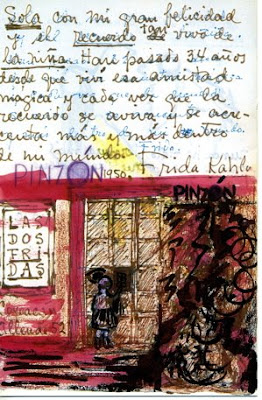 Sola con mi gran felicidad
y el recuerdo tan vivo de
la niña. Han pasado 34 años
desde que viví esa amistad
mágica y cada vez que la
recuerdo se aviva y se acre-
centa más y más dentro
de mi mundo.
PINZÓN 1950. Frida Kahlo
PINZÓN
LAS
DOS
FRI
DAS
Allende 52